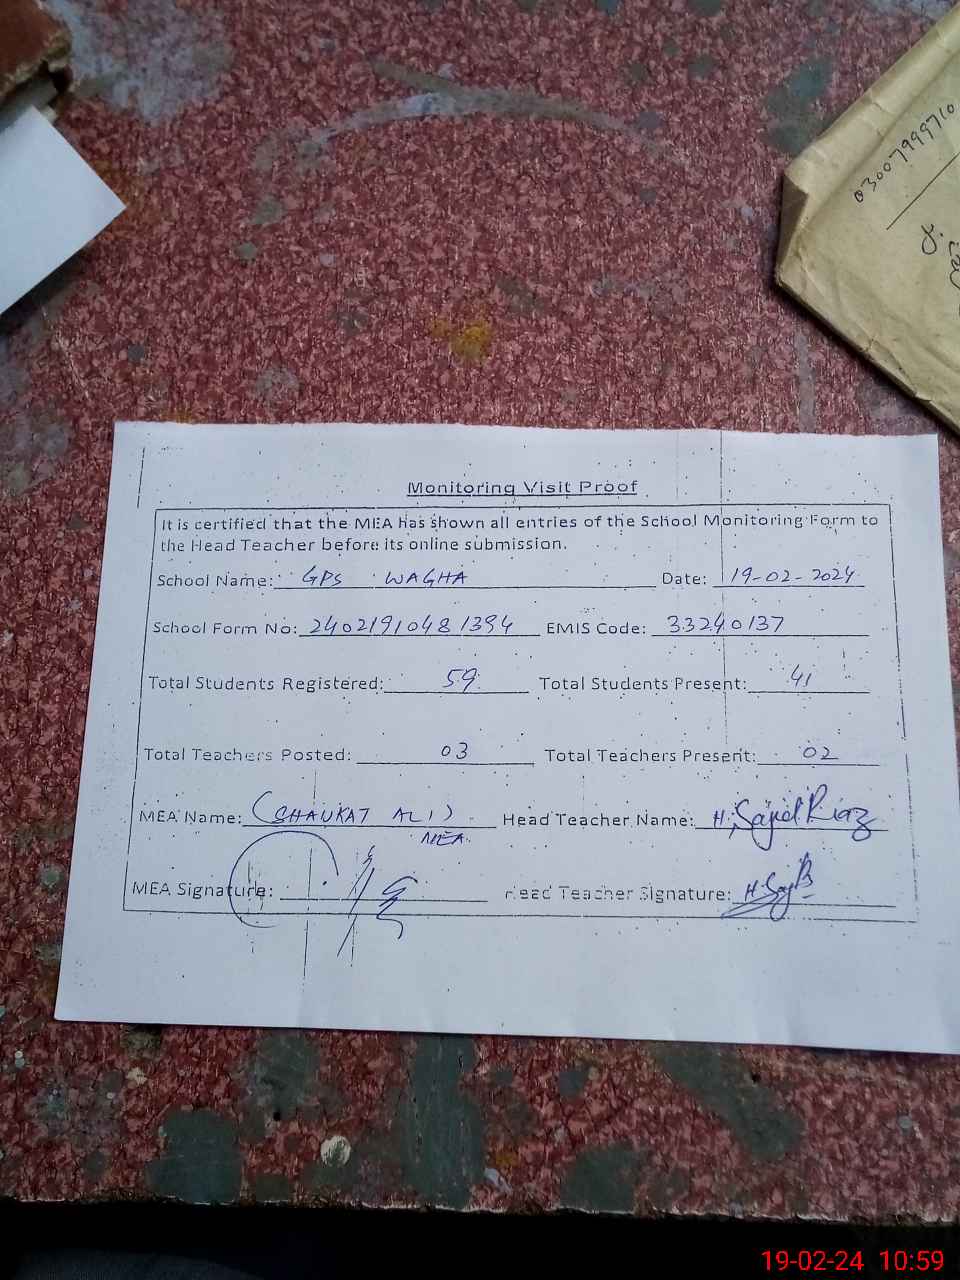 03007999710
Monitoring Visit Proof
It is certified that the MEA has shown all entries of the School Monitoring Form to
the Head Teacher before its online submission.
School Name: GPS WAGHA Date: 19-02-2024
School Form No: 24021910481394 EMIS Code: 33240137
Total Students Registered: 59 Total Students Present: 41
Total Teachers Posted: 03 Total Teachers Present: 02
MEA Name: (SHAUKAT ALI) Head Teacher Name: H. Sajid Riaz
MEA
MEA Signature: Head Teacher Signature:
19-02-24 10:59